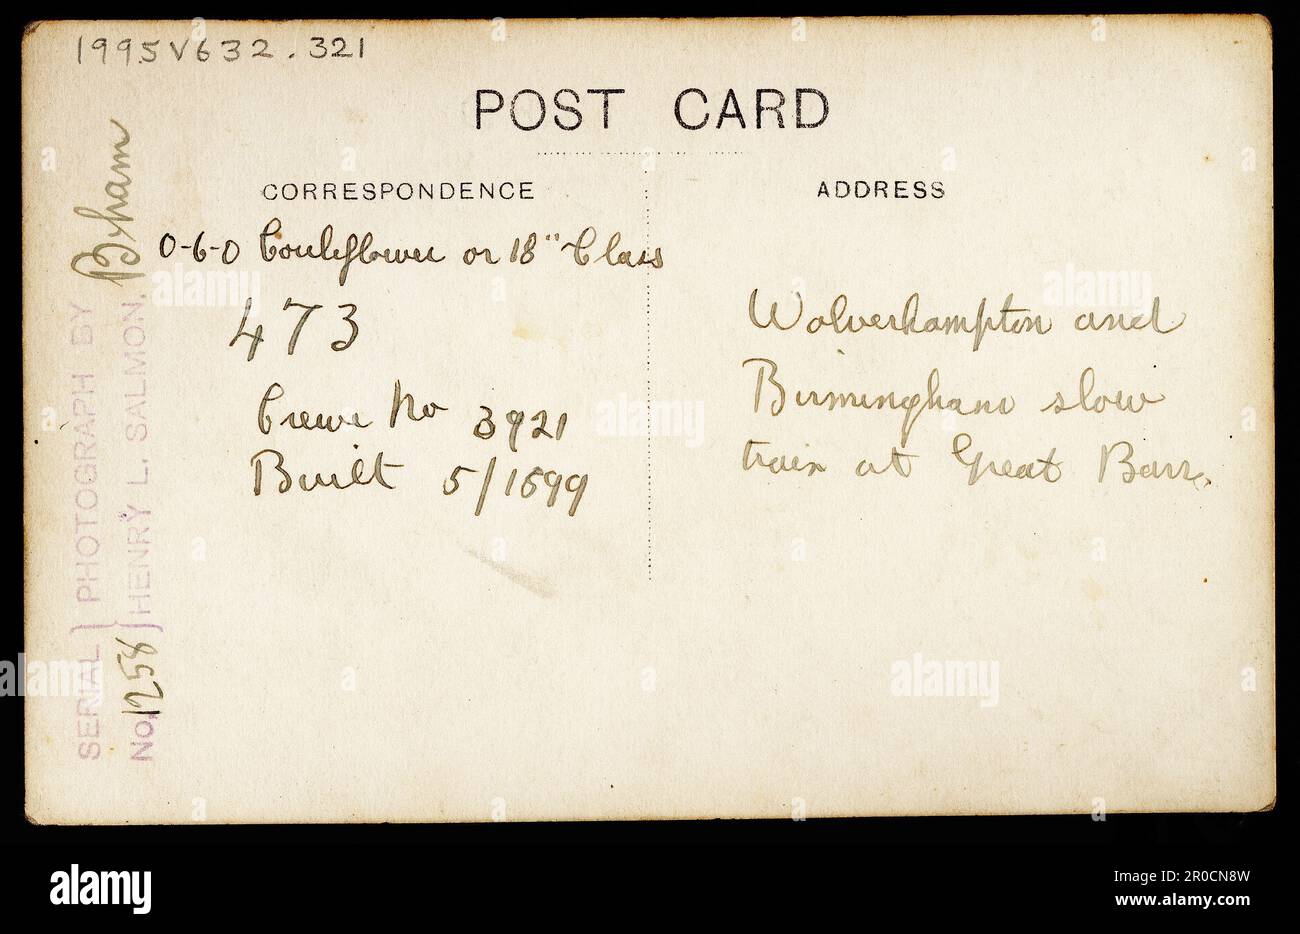 1995V632.321
POST CARD
CORRESPONDENCE
0-6-0 Cauliflower or 18" Class
473
Crewe No 3921
Built 5/1899
ADDRESS
Wolverhampton and
Birmingham slow
train at Great Barr.
B'ham
SERIAL } PHOTOGRAPH BY
No. 1258 } HENRY L. SALMON.
alamy
Image ID: 2R0CN8W
www.alamy.com